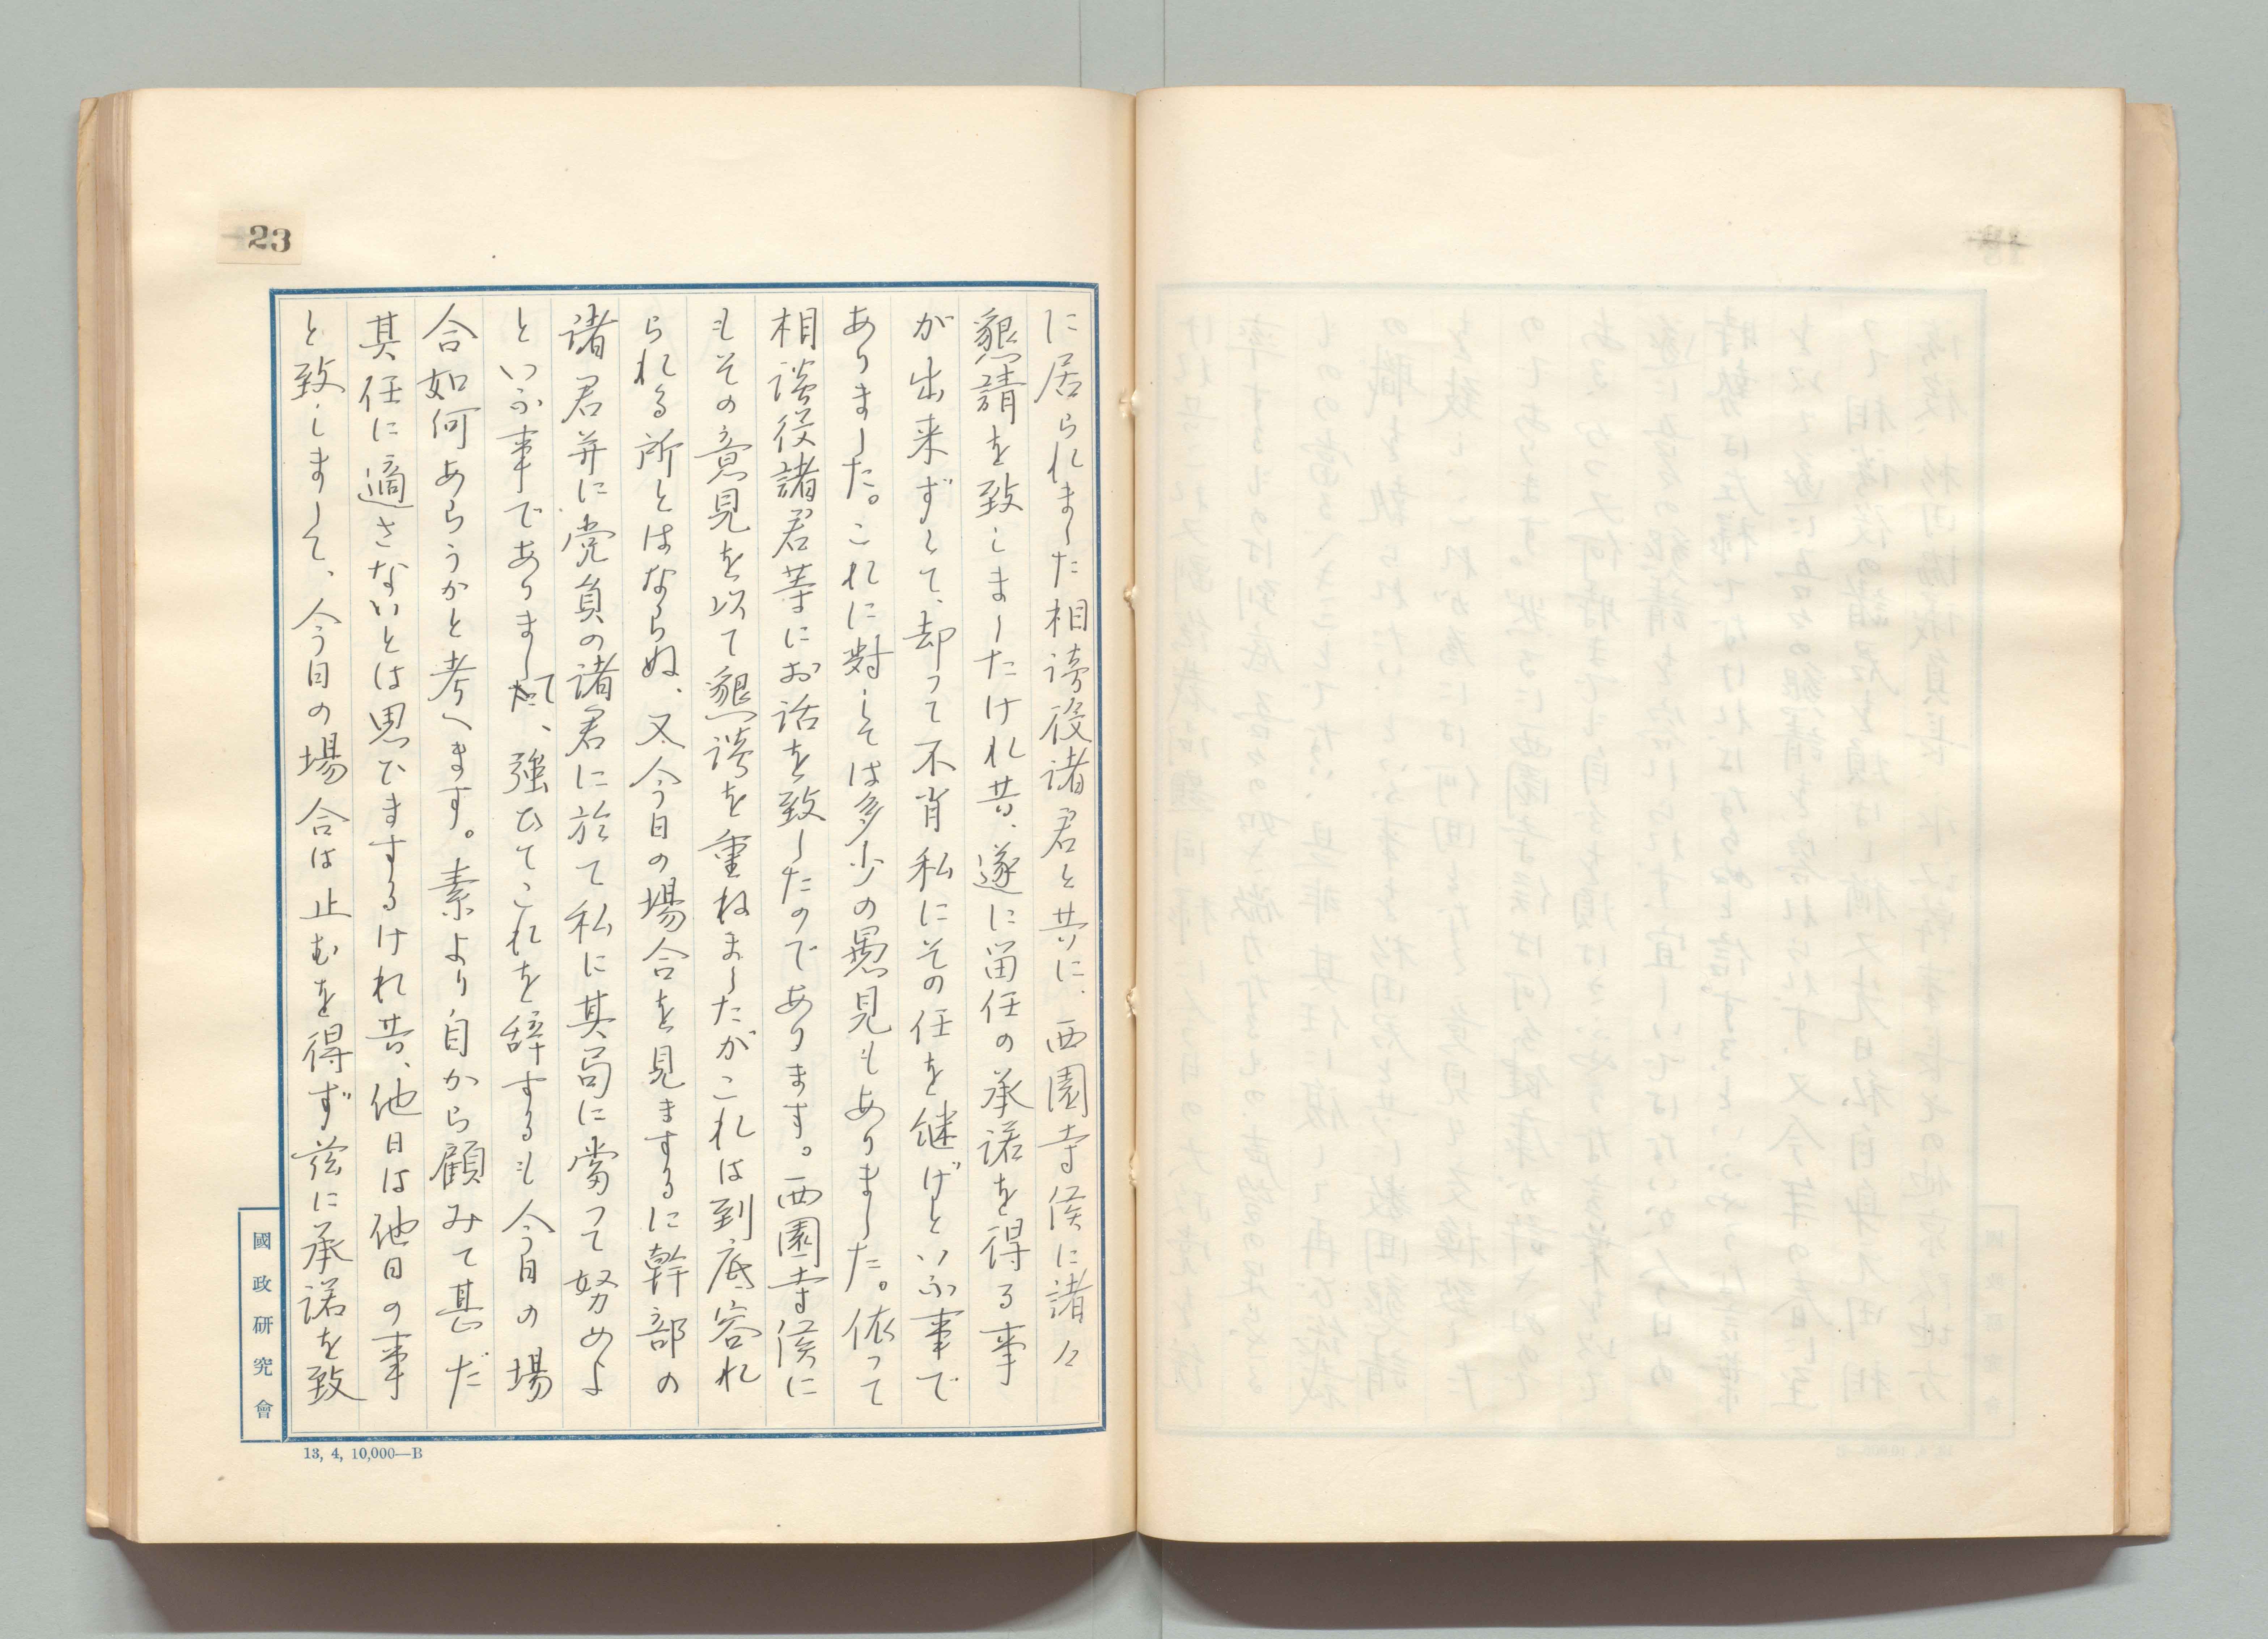 23
に居られました相談役諸君と共に、西園寺侯に諸々
懇請を致しましたけれ共、遂に留任の承諾を得る事
が出来ずして、却って不肖私にその任を継げといふ事で
ありました。これに対しては多少の愚見もありました。依って
相談役諸君等にお話を致したのであります。西園寺侯に
もその意見を以て懇談を重ねましたがこれは到底容れ
られる所とはならぬ、又今日の場合を見まするに幹部の
諸君并に党員の諸君に於て私に其局に當って努めよ
といふ事でありまして、強ひてこれを辞するも今日の場
合如何あらうかと考へます。素より自から顧みて甚だ
其任に適さないとは思ひまするけれ共、他日は他日の事
と致しまして、今日の場合は止むを得ず茲に承諾を致
國政研究會
13, 4, 10,000—B